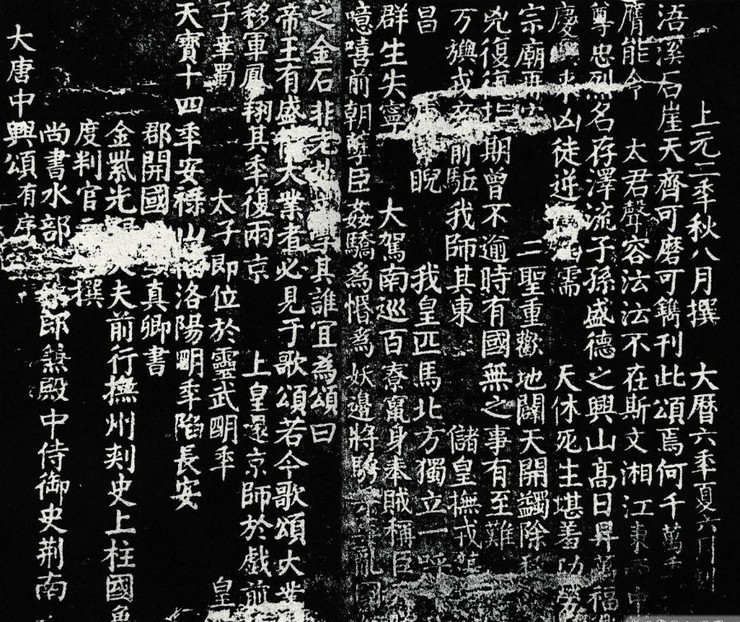 大唐中興頌有序
尚書水部郎兼殿中侍御史荊南
度判官撰
金紫光夫前行撫州刾史上柱國魯
郡開國真卿書
天寶十四秊安祿山陷洛陽明秊陷長安
子幸蜀 太子即位於靈武明秊 皇
移軍鳳翔其秊復兩京 上皇還京師於戲前
帝王有盛德大業者必見于歌頌若今歌頌大業
之金石非老學其誰宜為頌曰
噫嘻前朝孽臣姦驕為惛為妖邊將騁亂國
群生失寧 大駕南巡百寮竄身奉賊稱臣
昌睨 我皇匹馬北方獨立一呼
万旟戎卒前駈我師其東 儲皇撫戎蕩
兇復復指期曾不逾時有國無之事有至難
宗廟再安 二聖重歡地闢天開蠲除
慶來凶徒逆濡 天休死生堪羞功勞
尊忠烈名存澤流子孫盛德之興山高日昇萬福
膺能令 大君聲容沄沄不在斯文湘江東西中
浯溪石崖天齊可磨可鐫刊此頌焉何千萬年
上元二秊秋八月撰 大曆六秊夏六月刻